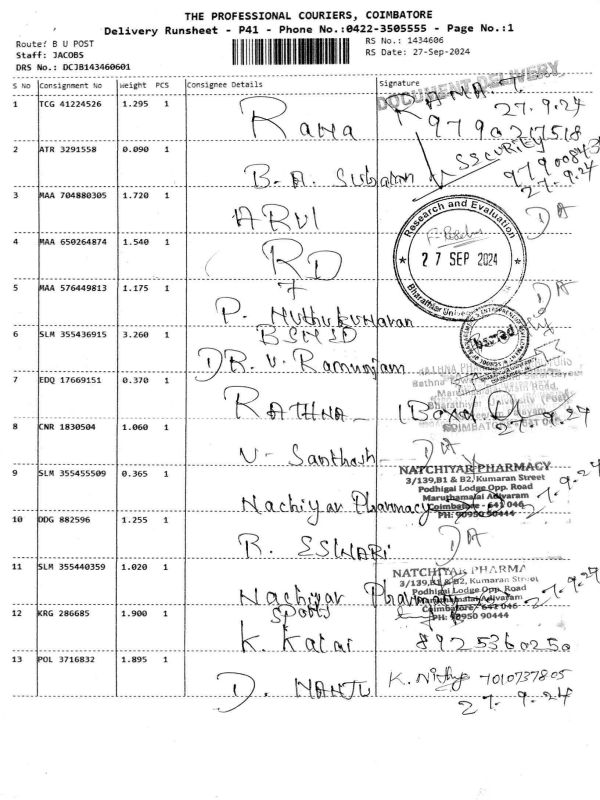 THE PROFESSIONAL COURIERS, COIMBATORE
Delivery Runsheet - P41 - Phone No.:0422-3505555 - Page No.:1
Route: B U POST
Staff: JACOBS
DRS No.: DCJB143460601
RS No.: 1434606
RS Date: 27-Sep-2024
S No Consignment No Weight PCS Consignee Details Signature
DOCUMENT DELIVERY
1 TCG 41224526 1.295 1 Rana RAMA.T.
27.9.24
9790217518
2 ATR 3291558 0.090 1 B.A. SECURITY
27.9.24
3 MAA 704880305 1.720 1 ARUl DA
Research and Evaluation
27 SEP 2024
Bharathiar University
4 MAA 650264874 1.540 1 RD
5 MAA 576449813 1.175 1 P. Muthukumaran DA
6 SLM 355436915 3.260 1 BSMSD
DR. V. Ramunjam
7 EDQ 17669151 0.370 1 RATHNA
27.9.24
8 CNR 1830504 1.060 1 V- Santhosh DA
9 SLM 355455509 0.365 1 Nachiyar Pharmacy
NATCHIYAR PHARMACY
3/139,B1 & B2, Kumaran Street
Podhigai Lodge Opp. Road
Maruthamalai Adivaram
Coimbatore - 641 046
PH: 90950 90444
27.9.24
10 DDG 882596 1.255 1 R. ESWARI DA
11 SLM 355440359 1.020 1 Nachiyar Pharmacy
NATCHIYAR PHARMA
3/139,B1 & B2, Kumaran Street
Podhigai Lodge Opp. Road
Maruthamalai Adivaram
Coimbatore - 642 046
PH: 90950 90444
27.9.24
12 KRG 286685 1.900 1 Sports
K. Kalai 8925360250
13 POL 3716832 1.895 1 D. NANJU K. Nithya 7010737805
27.9.24